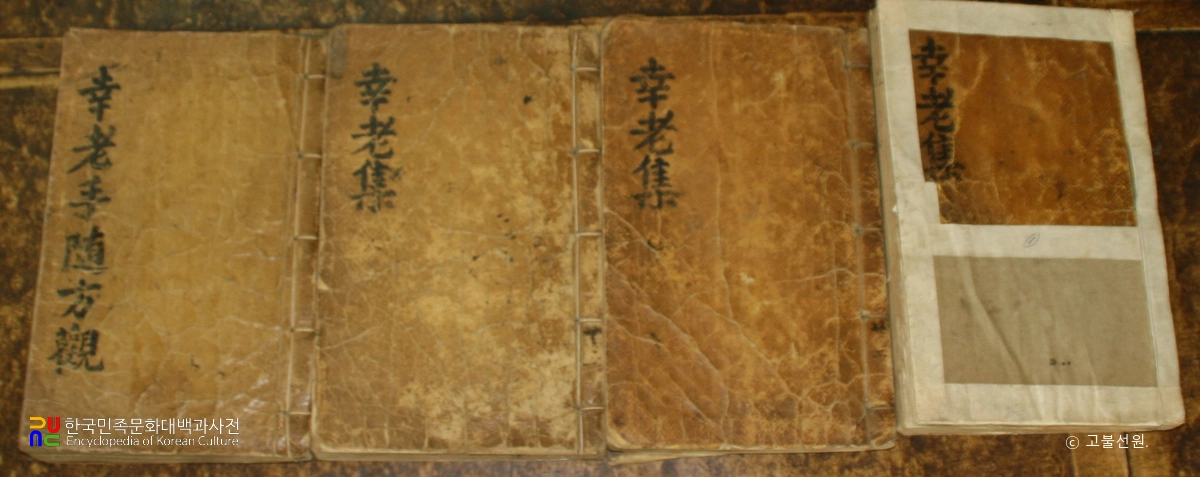 幸老手隨方觀
幸老集
幸老集
幸老集
한국민족문화대백과사전
Encyclopedia of Korean Culture
ⓒ 고불선원.